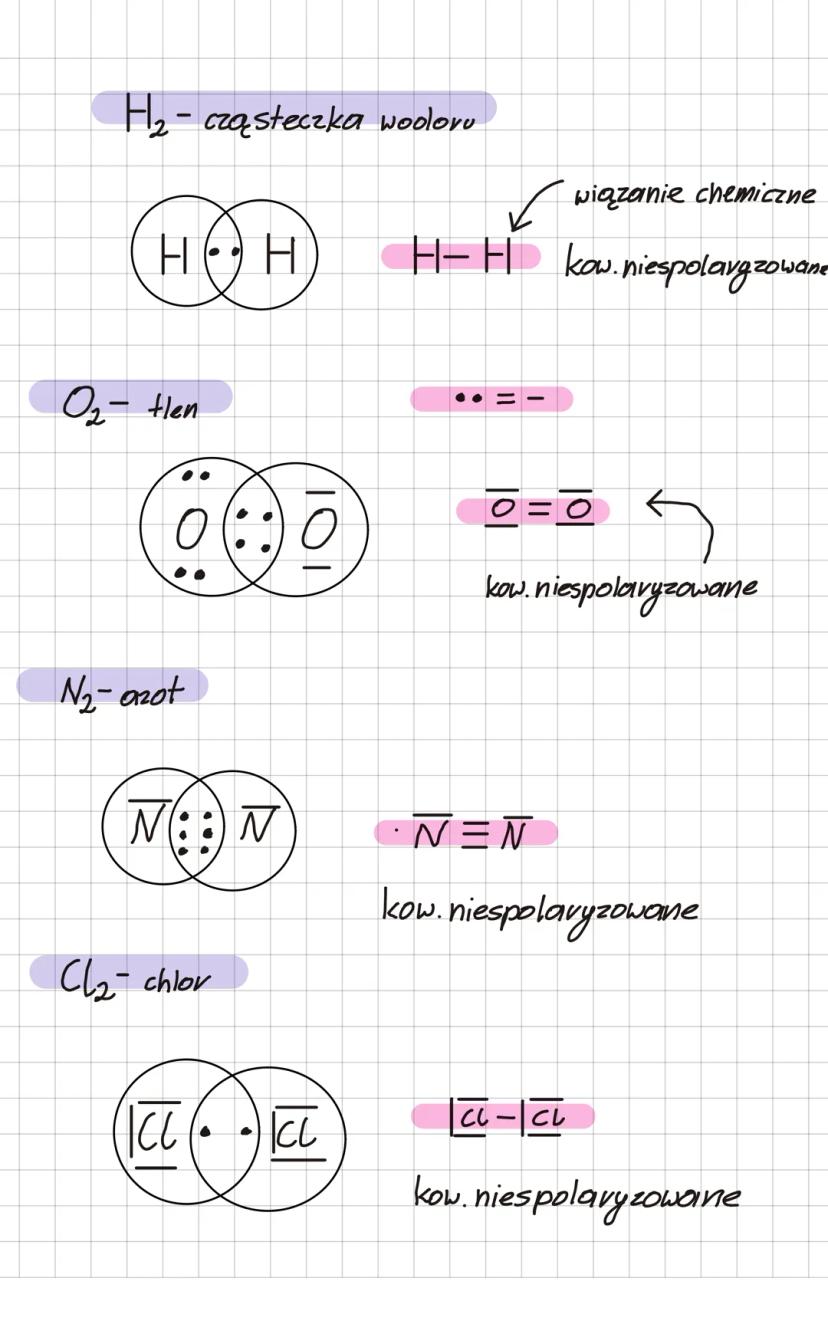 H₂ - cząsteczka wodoru
wiązanie chemiczne
H H
H - H
kow. niespolaryzowane
O₂ - tlen
•• = -
O O
O = O
kow. niespolaryzowane
N₂ - azot
N N
N ≡ N
kow. niespolaryzowane
Cl₂ - chlor
|Cl |Cl
|Cl - |Cl
kow. niespolaryzowane